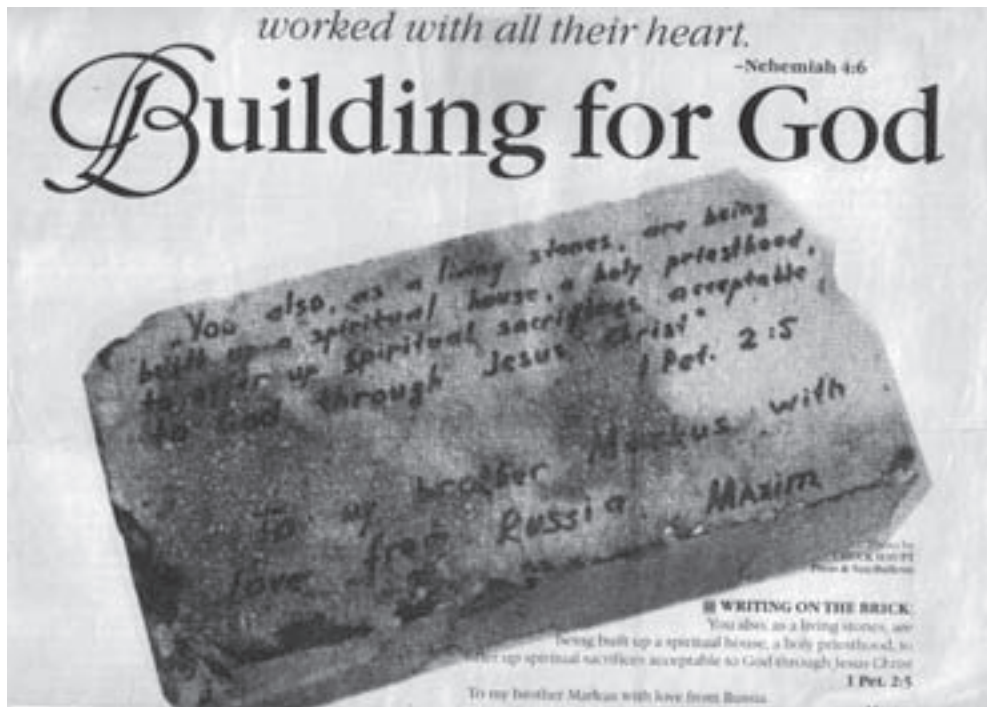 worked with all their heart.
–Nehemiah 4:6
Building for God
You also, as a living stones, are being
built up a spiritual house, a holy priesthood,
to offer up spiritual sacrifices acceptable
to God through Jesus Christ"
1 Pet. 2:5
To my brother Markus with
love from Russia Maxim
Press & Sun-Bulletin
■ WRITING ON THE BRICK:
You also, as a living stones, are
being built up a spiritual house, a holy priesthood, to
offer up spiritual sacrifices acceptable to God through Jesus Christ
1 Pet. 2:5
To my brother Markus with love from Russia